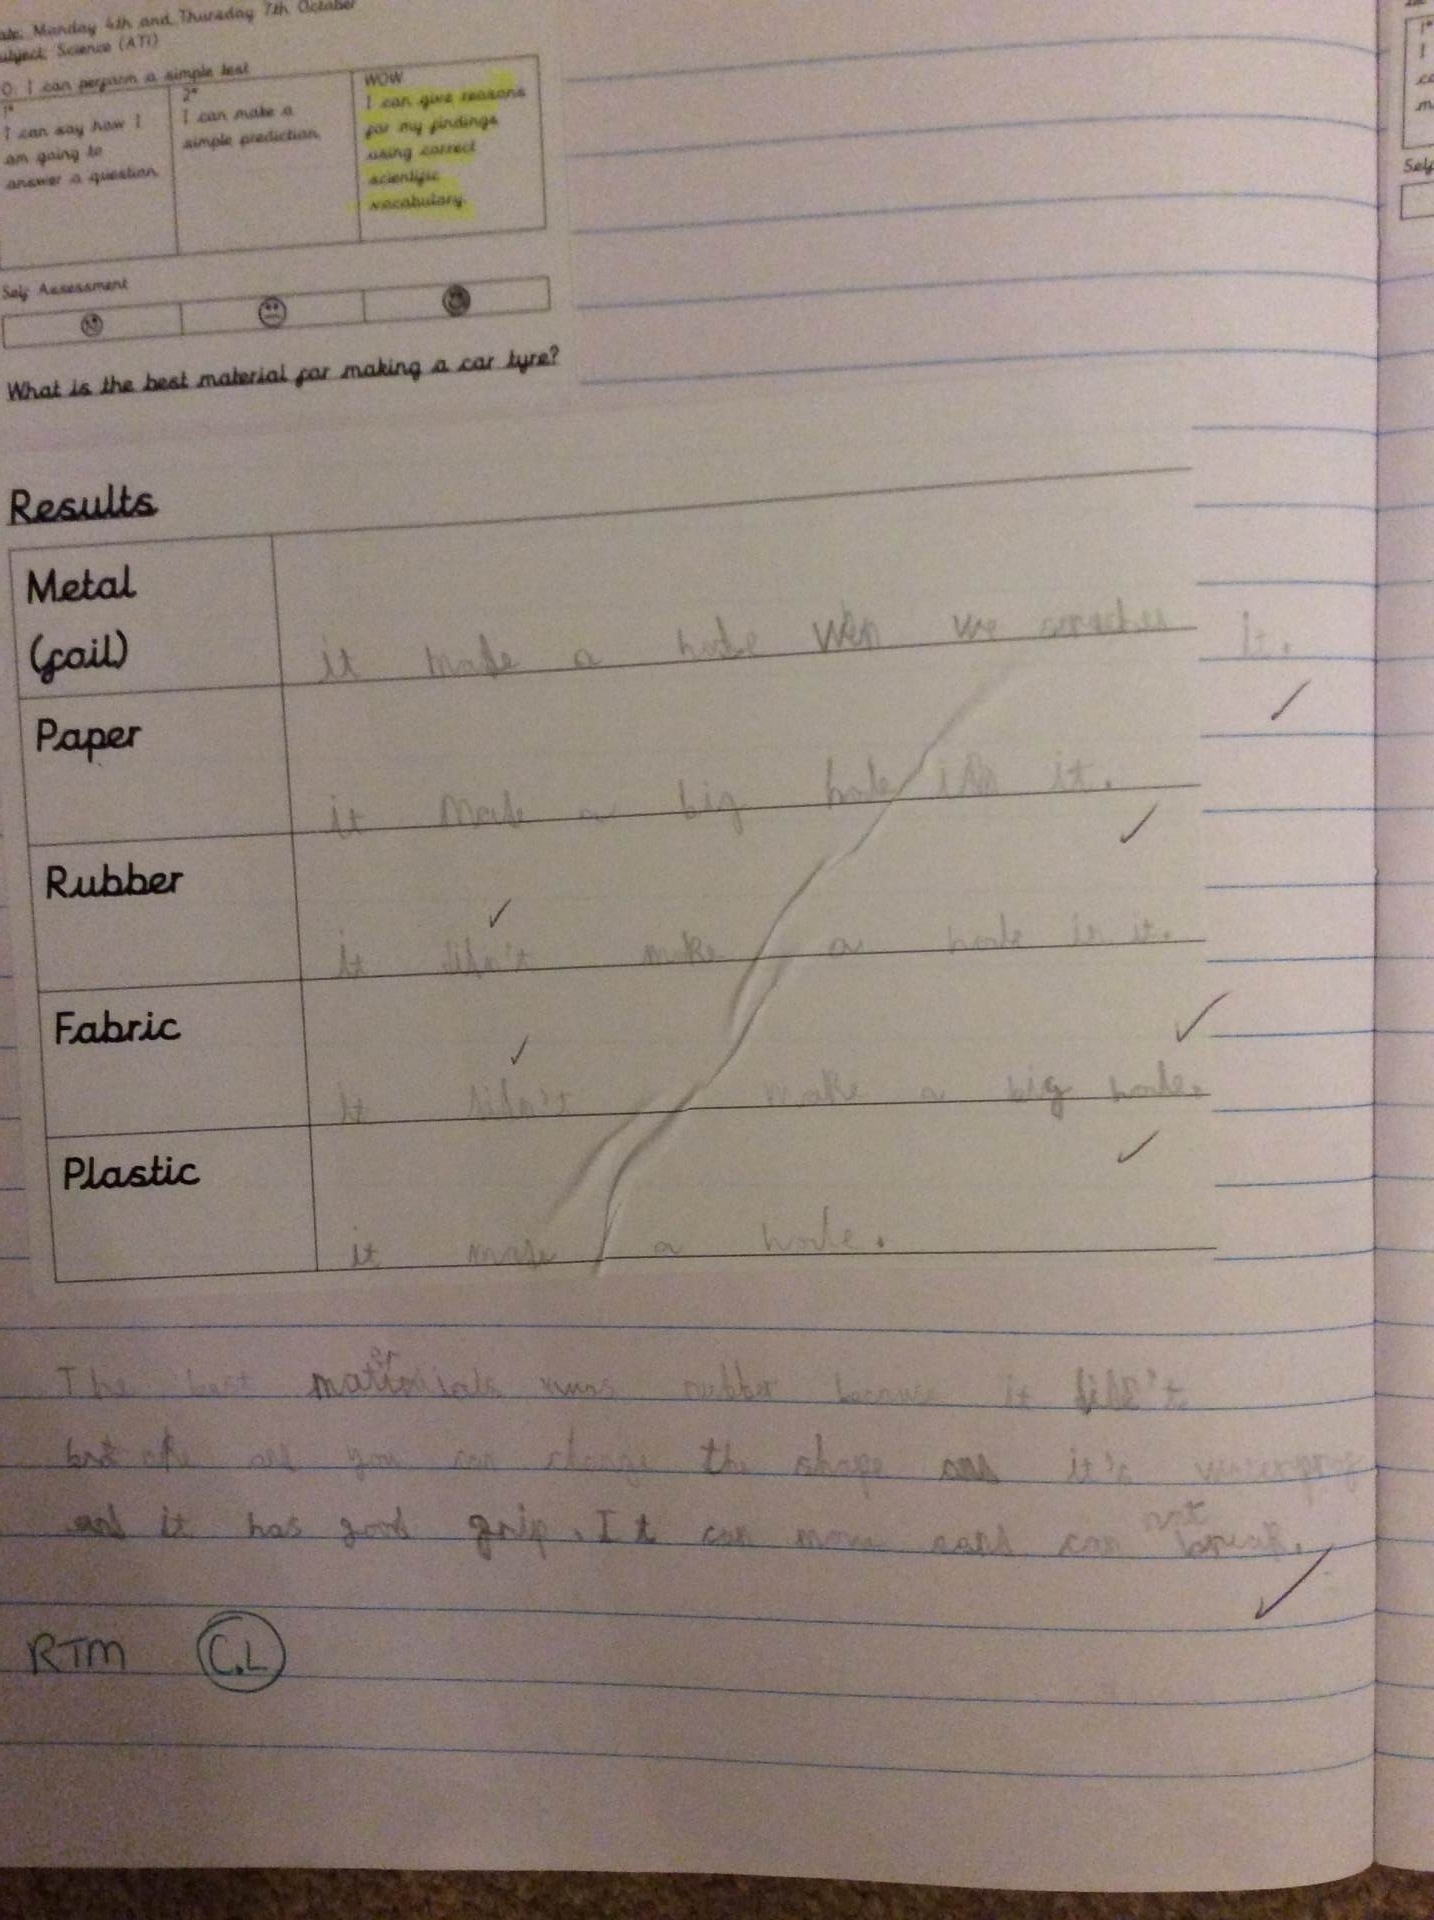 Date: Monday 4th and Thursday 7th October
Subject: Science (AT1)
O: I can perform a simple test
1*
I can say how I
am going to
answer a question.
2*
I can make a
simple prediction.
WOW
I can give reasons
for my findings
using correct
scientific
vocabulary.
Self Assessment
What is the best material for making a car tyre?
Results
Metal
(foil)
it made a hole wen we it.
Paper
it made a big hole in it.
Rubber
it didn't make a hole in it.
Fabric
It didn't make a big hole.
Plastic
it made a hole.
The best materials was rubber because it didn't
you can change the shape and it's
and it has good grip. It can move and can not break.
RTM C.L
Self